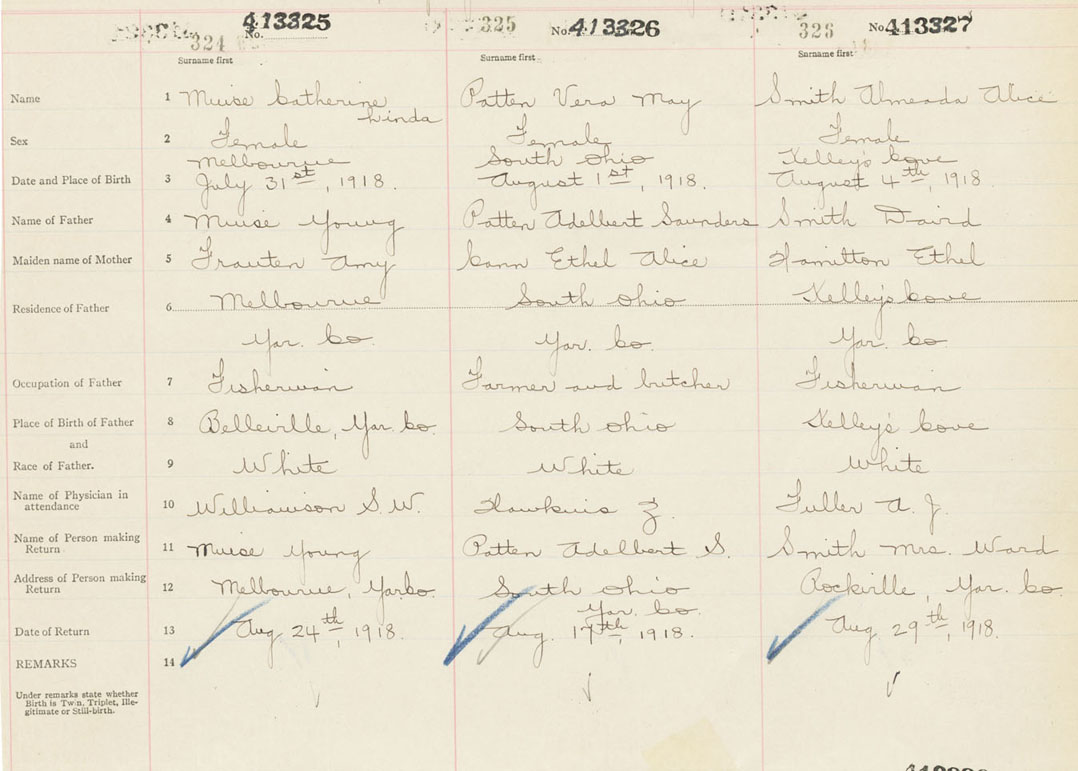 No. 413325 No. 413326 No. 413327
324 325 326
Surname first Surname first Surname first
Name 1 Muise Catherine Patten Vera May Smith Almeada Alice
Linda
Sex 2 Female Female Female
Melbourne South Ohio Kelley's Cove
Date and Place of Birth 3 July 31st, 1918. August 1st, 1918. August 4th, 1918
Name of Father 4 Muise Young Patten Adelbert Saunders Smith David
Maiden name of Mother 5 Frauten Amy Cann Ethel Alice Hamilton Ethel
Residence of Father 6 Melbourne South Ohio Kelley's Cove
Yar. Co. Yar. Co. Yar. Co
Occupation of Father 7 Fisherman Farmer and butcher Fisherman
Place of Birth of Father 8 Belleville, Yar. Co. South Ohio Kelley's Cove
and
Race of Father. 9 White White White
Name of Physician in
attendance 10 Williamson S. W. Hawkins Z. Fuller A. J.
Name of Person making
Return 11 Muise Young Patten Adelbert S. Smith Mrs. Ward
Address of Person making
Return 12 Melbourne, Yar. Co. South Ohio Rockville, Yar. Co.
Yar. Co.
Date of Return 13 Aug. 24th, 1918. Aug. 17th, 1918. Aug. 29th, 1918.
REMARKS 14
Under remarks state whether
Birth is Twin, Triplet, Ille-
gitimate or Still-birth.